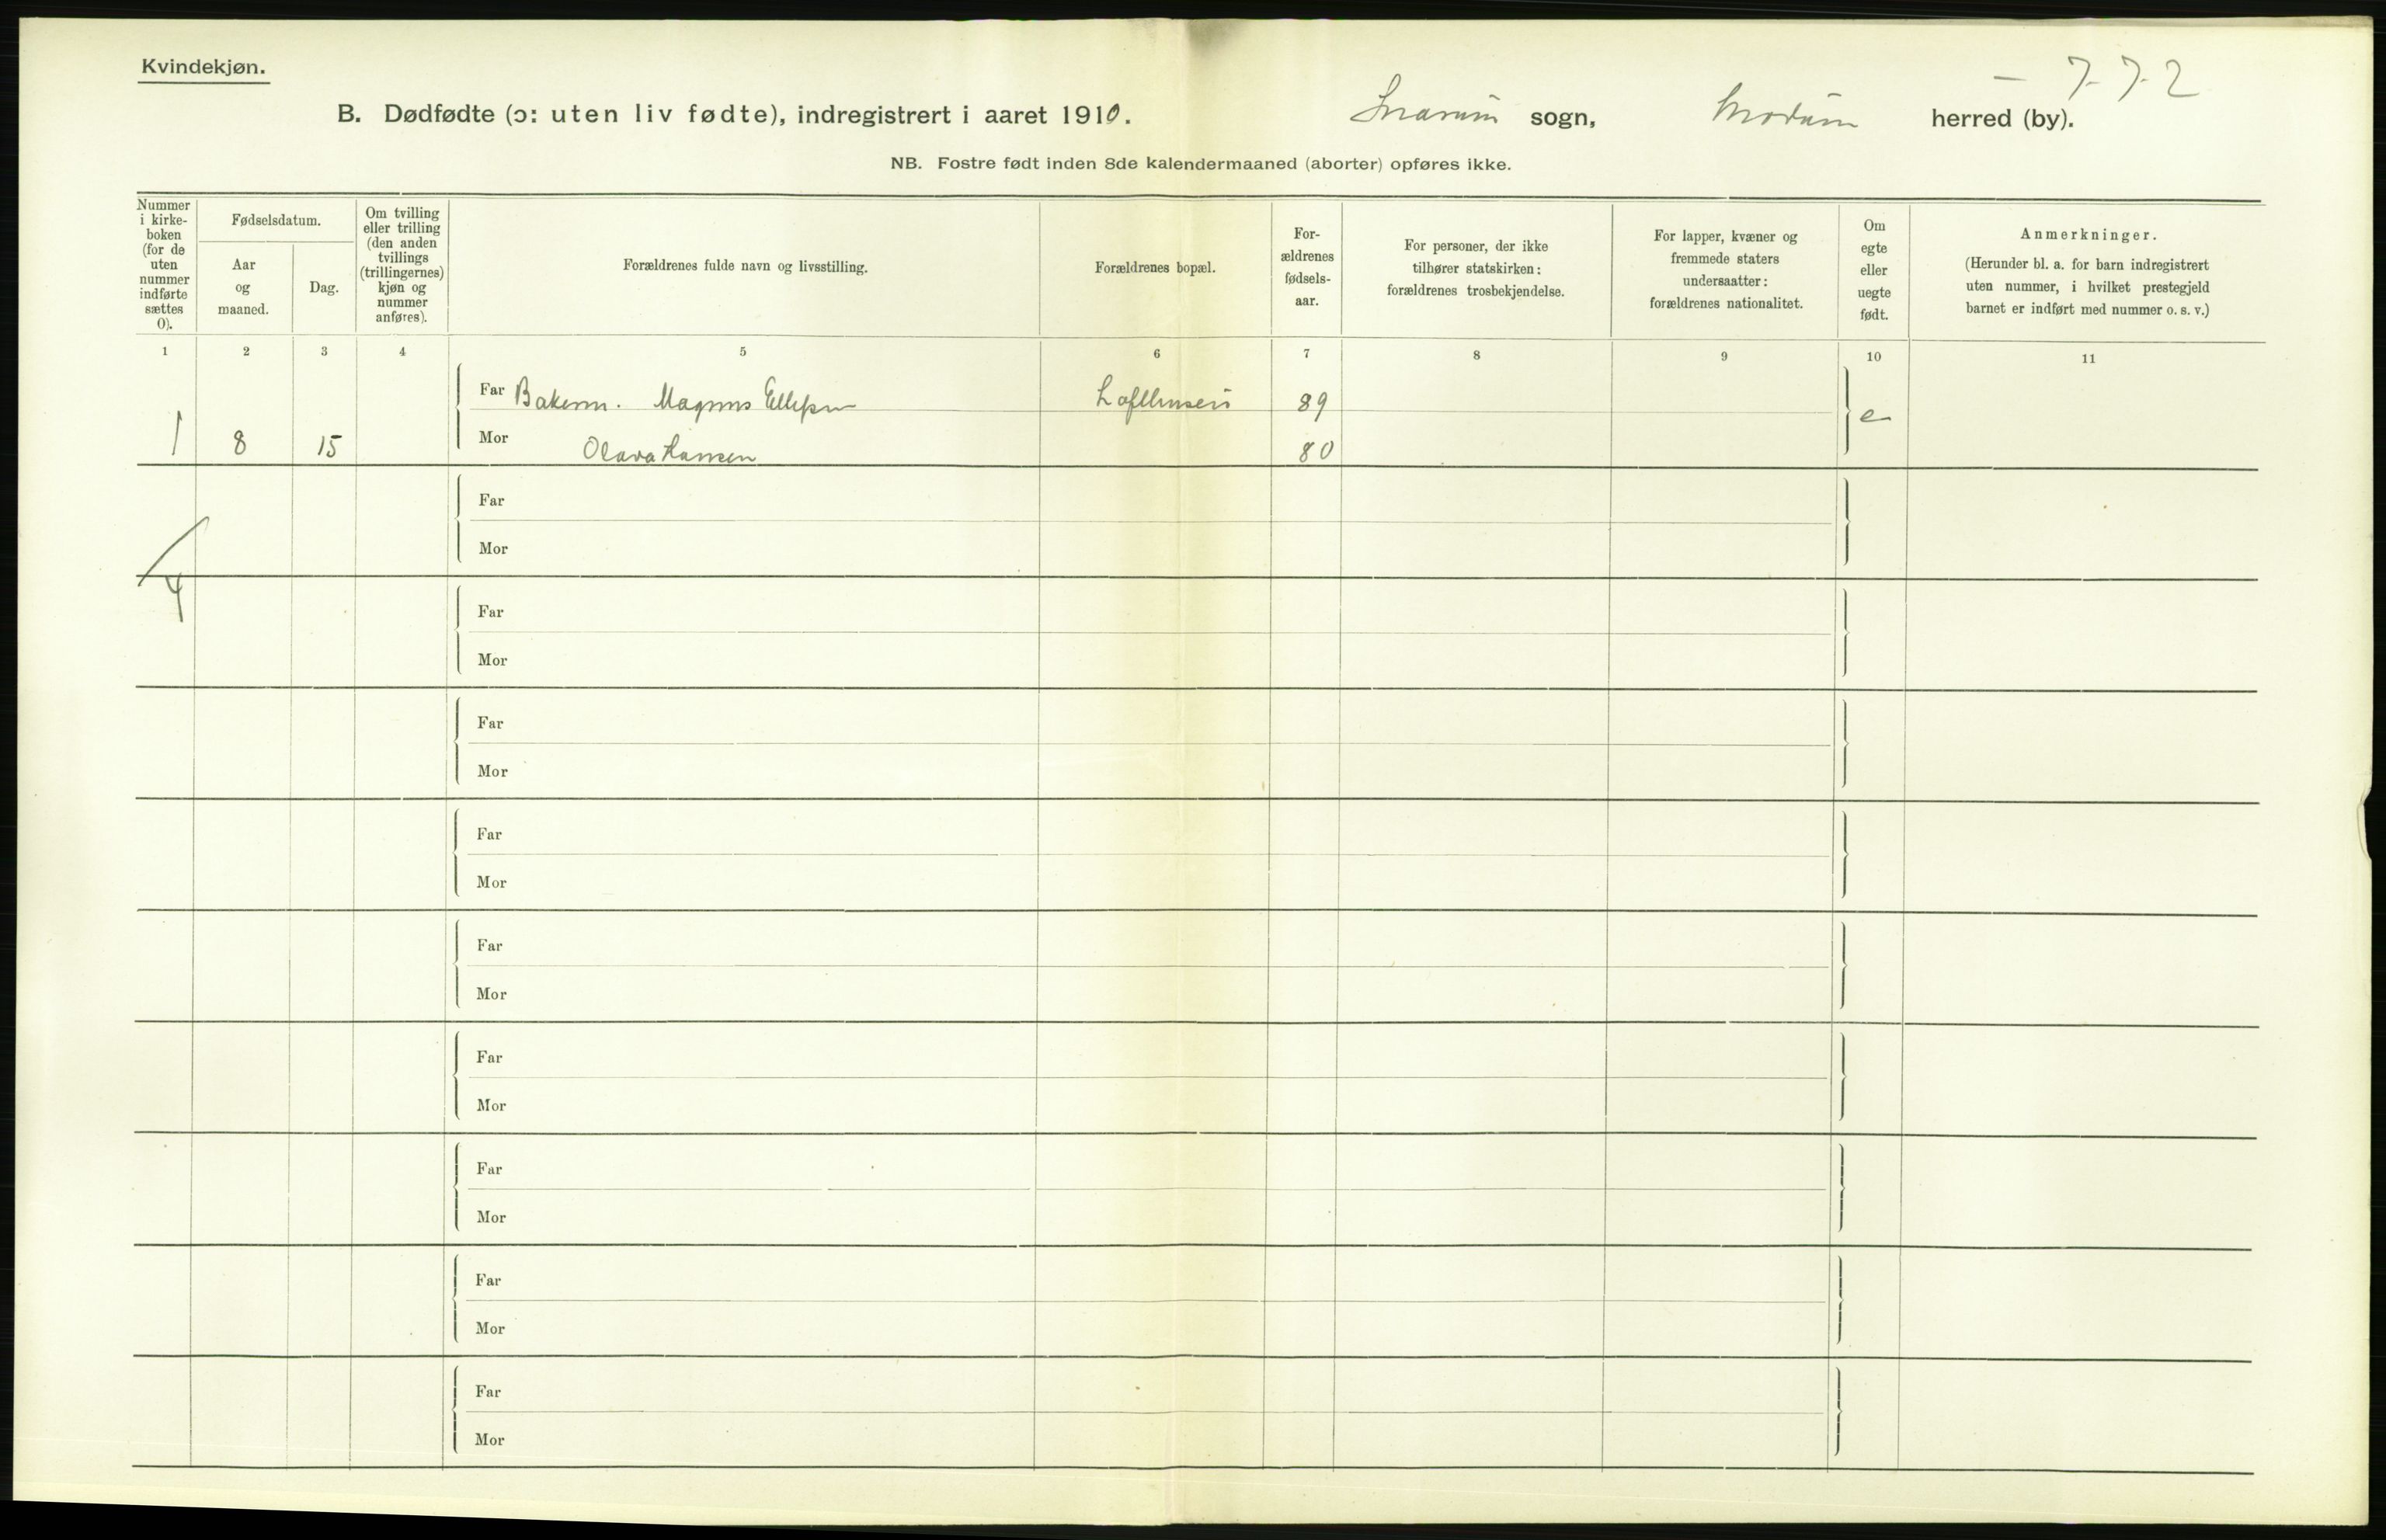 Kvindekjøn.
— 7-7-2
B. Dødfødte (ɔ: uten liv fødte), indregistrert i aaret 1910. Snarum sogn, Modum herred (by).
NB. Fostre født inden 8de kalendermaaned (aborter) opføres ikke.
Nummer i kirke-boken (for de uten nummer indførte sættes 0).
Fødselsdatum.
Aar og maaned.
Dag.
Om tvilling eller trilling (den anden tvillings (trillingernes) kjøn og nummer anføres).
Forældrenes fulde navn og livsstilling.
Forældrenes bopæl.
For-ældrenes fødsels-aar.
For personer, der ikke tilhører statskirken: forældrenes trosbekjendelse.
For lapper, kvæner og fremmede staters undersaatter: forældrenes nationalitet.
Om egte eller uegte født.
Anmerkninger.
(Herunder bl. a. for barn indregistrert uten nummer, i hvilket prestegjeld barnet er indført med nummer o. s. v.)
1 2 3 4 5 6 7 8 9 10 11
Far Bakerm. Magnus Ellefsen Lofthusei 89 e
1 8 15 Mor Olava Hansen 80
Far
Mor
4
Far
Mor
Far
Mor
Far
Mor
Far
Mor
Far
Mor
Far
Mor
Far
Mor
Far
Mor